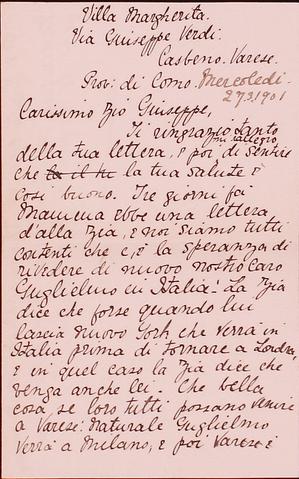 Villa Margherita.
Via Giuseppe Verdi.
Casbeno. Varese.
Prov: di Como. Mercoledi
27.3.1901
Carissimo Zio Giuseppe,
Ti ringrazio tanto
della tua lettera, e poi mi rallegro di sentire
che la tua salute è
cosi buono. Tre giorni fai
Mamma ebbe una lettera
d'alla Zia, e noi siamo tutti
contenti che c,è la speranza di
rivedere di nuovo nostro caro
Guglielmo in Italia! La Zia
dice che forse quando lui
lascia Nuovo York che verrà in
Italia prima di tornare a Londra,
e in quel caso la Zia dice che
venga anche lei. Che bella
cosa se loro tutti possano venire
a Varese: Naturale Guglielmo
verrà a Milano, e poi Varese è